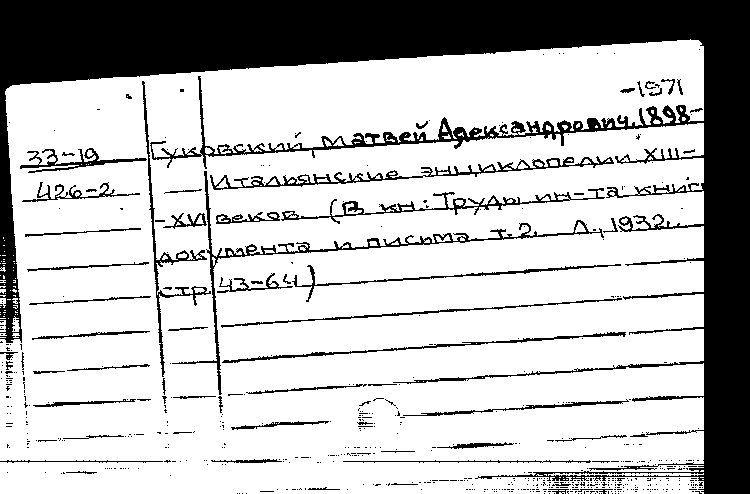 -1971
33-19 Гуковский, Матвей Александрович, 1898-
426-2 Итальянские энциклопедии XIII-
-XVI веков. (В кн.: Труды ин-та книги
документа и письма т.2. Л., 1932.
стр 43-64)